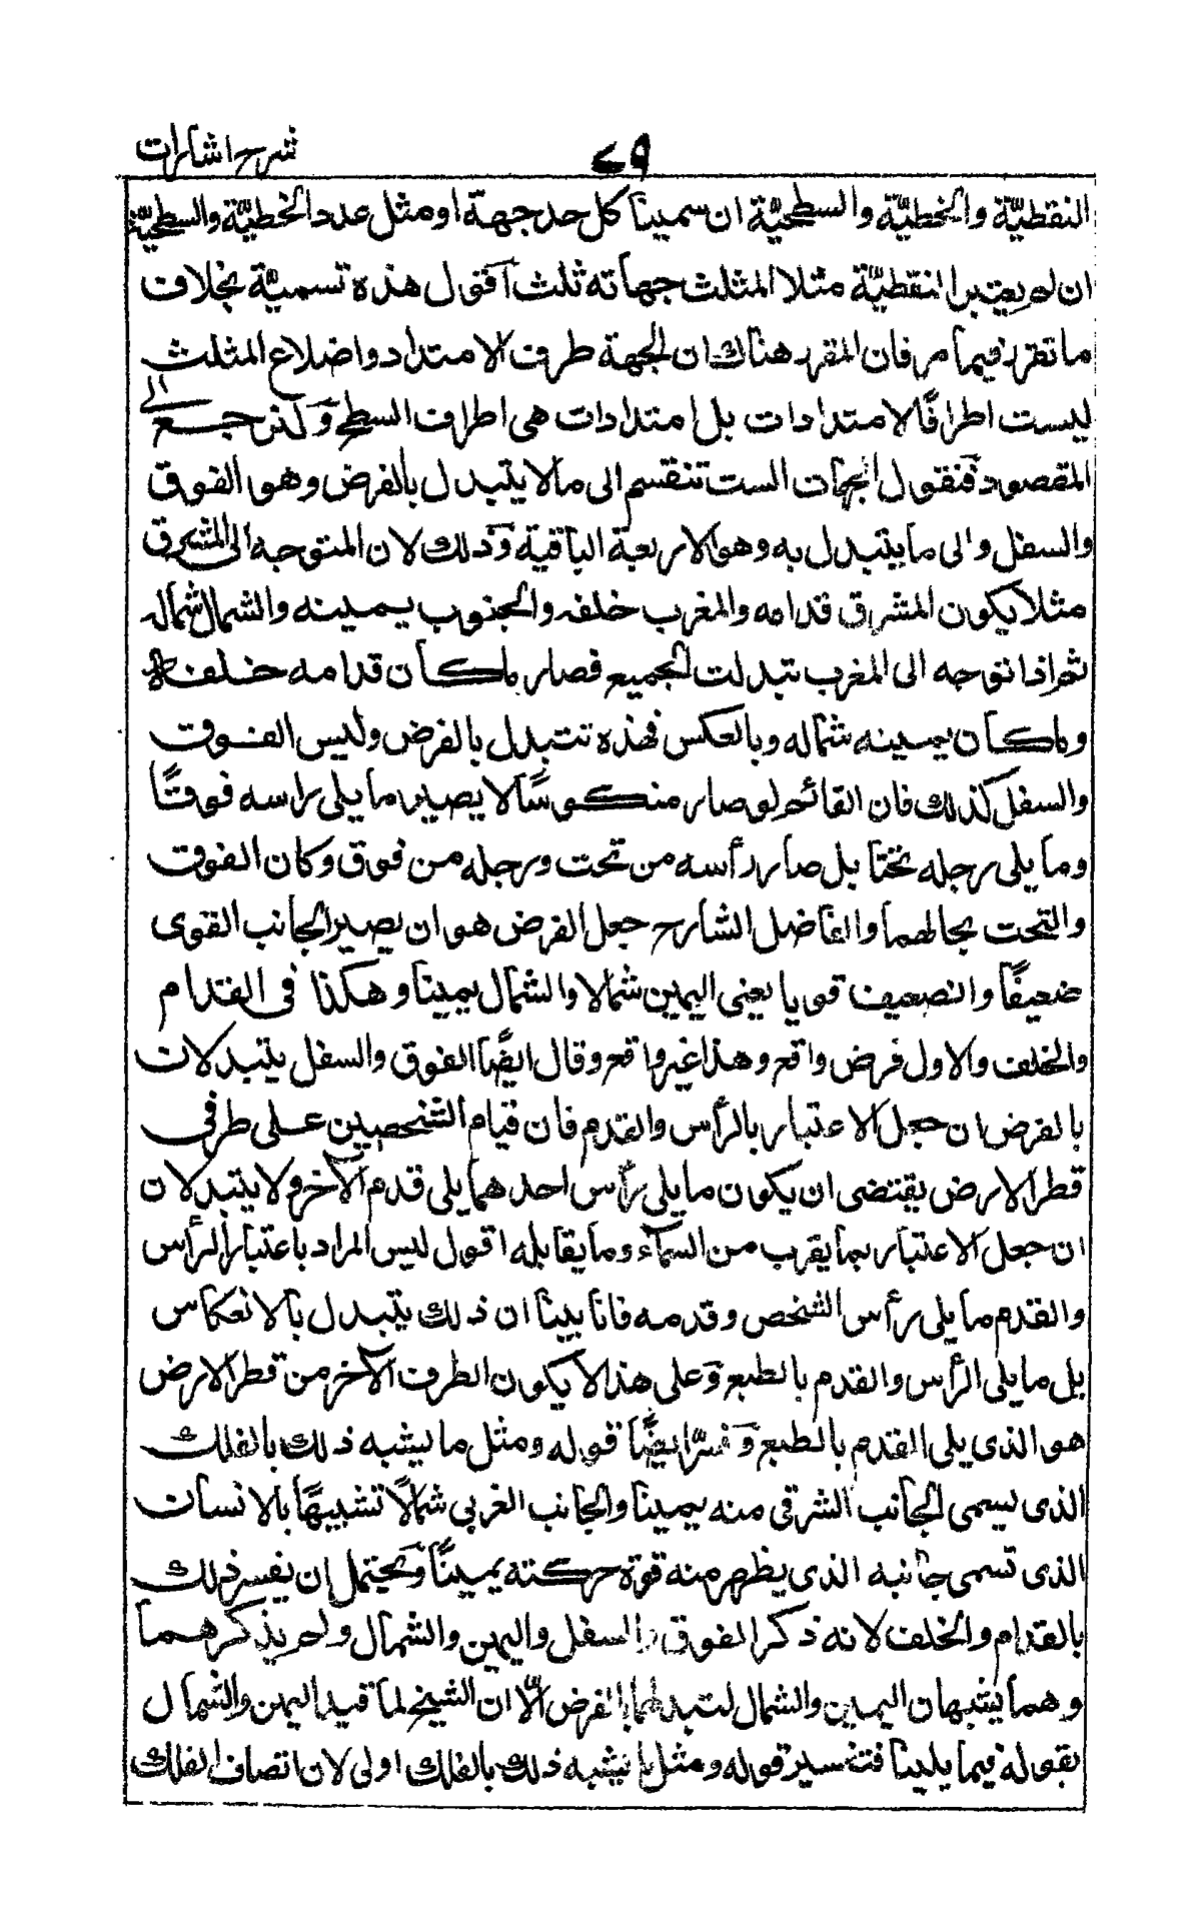 شرح اشارات
٧٩
النقطيّة والخطيّة والسطحيّة ان سمينا كل حد جهة او مثل عدد الخطيّة والسطحيّة
ان لم يعتبر النقطيّة مثلا المثلث جهاته ثلث اقول هذه تسميّة بخلاف
ما تقرر فيما مر فان المقرر هناك ان الجهة طرف الامتداد واضلاع المثلث
ليست اطرافًا لامتدادات بل امتدادات هى اطراف السطح ولنرجع الى
المقصود فنقول الجهات الست تنقسم الى ما لا يتبدل بالفرض وهو الفوق
والسفل والى ما يتبدل به وهو الاربعة الباقية وذلك لان المتوجه الى المشرق
مثلا يكون المشرق قدامه والمغرب خلفه والجنوب يمينه والشمال شماله
ثم اذا توجه الى المغرب تبدلت الجميع فصار ما كان قدامه خلفه
وما كان يمينه شماله وبالعكس فهذه تتبدل بالفرض وليس الفوق
والسفل كذلك فان القائم لو صار منكوسًا لا يصير ما يلى راسه فوقًا
وما يلى رجله تحتا بل صار رأسه من تحت ورجله من فوق وكان الفوق
والتحت بحالهما والفاضل الشارح جعل الفرض هو ان يصير الجانب القوى
ضعيفًا والضعيف قويا يعنى اليمين شمالا والشمال يمينا وهكذا فى القدام
والخلف والاول فرض واقع وهذا غير واقع وقال ايضًا الفوق والسفل يتبدلان
بالفرض ان جعل الاعتبار بالرأس والقدم فان قيام الشخصين على طرفى
قطر الارض يقتضى ان يكون ما يلى رأس احدهما يلى قدم الآخر ولا يتبدلان
ان جعل الاعتبار بما يقرب من السماء وما يقابله اقول ليس المراد باعتبار الرأس
والقدم ما يلى رأس الشخص وقدمه فانا بينا ان ذلك يتبدل بالانعكاس
بل ما يلى الرأس والقدم بالطبع وعلى هذا لا يكون الطرف الآخر من قطر الارض
هو الذى يلى القدم بالطبع وفسّر ايضًا قوله ومثل ما يشبه ذلك بالفلك
الذى يسمى الجانب الشرقى منه يمينا والجانب الغربى شمالًا تشبيهًا بالانسان
الذى تسمى جانبه الذى يظهر منه قوة حركته يمينًا ويحتمل ان يفسر ذلك
بالقدام والخلف لانه ذكر الفوق والسفل واليمين والشمال ولم يذكرهما
وهما يشبهان اليمين والشمال لتبدلهما بالفرض الّا ان الشيخ لما قيد اليمين والشمال
بقوله فيما يلينا فتفسير قوله ومثل ما يشبه ذلك بالفلك اولى لان اتصاف الفلك